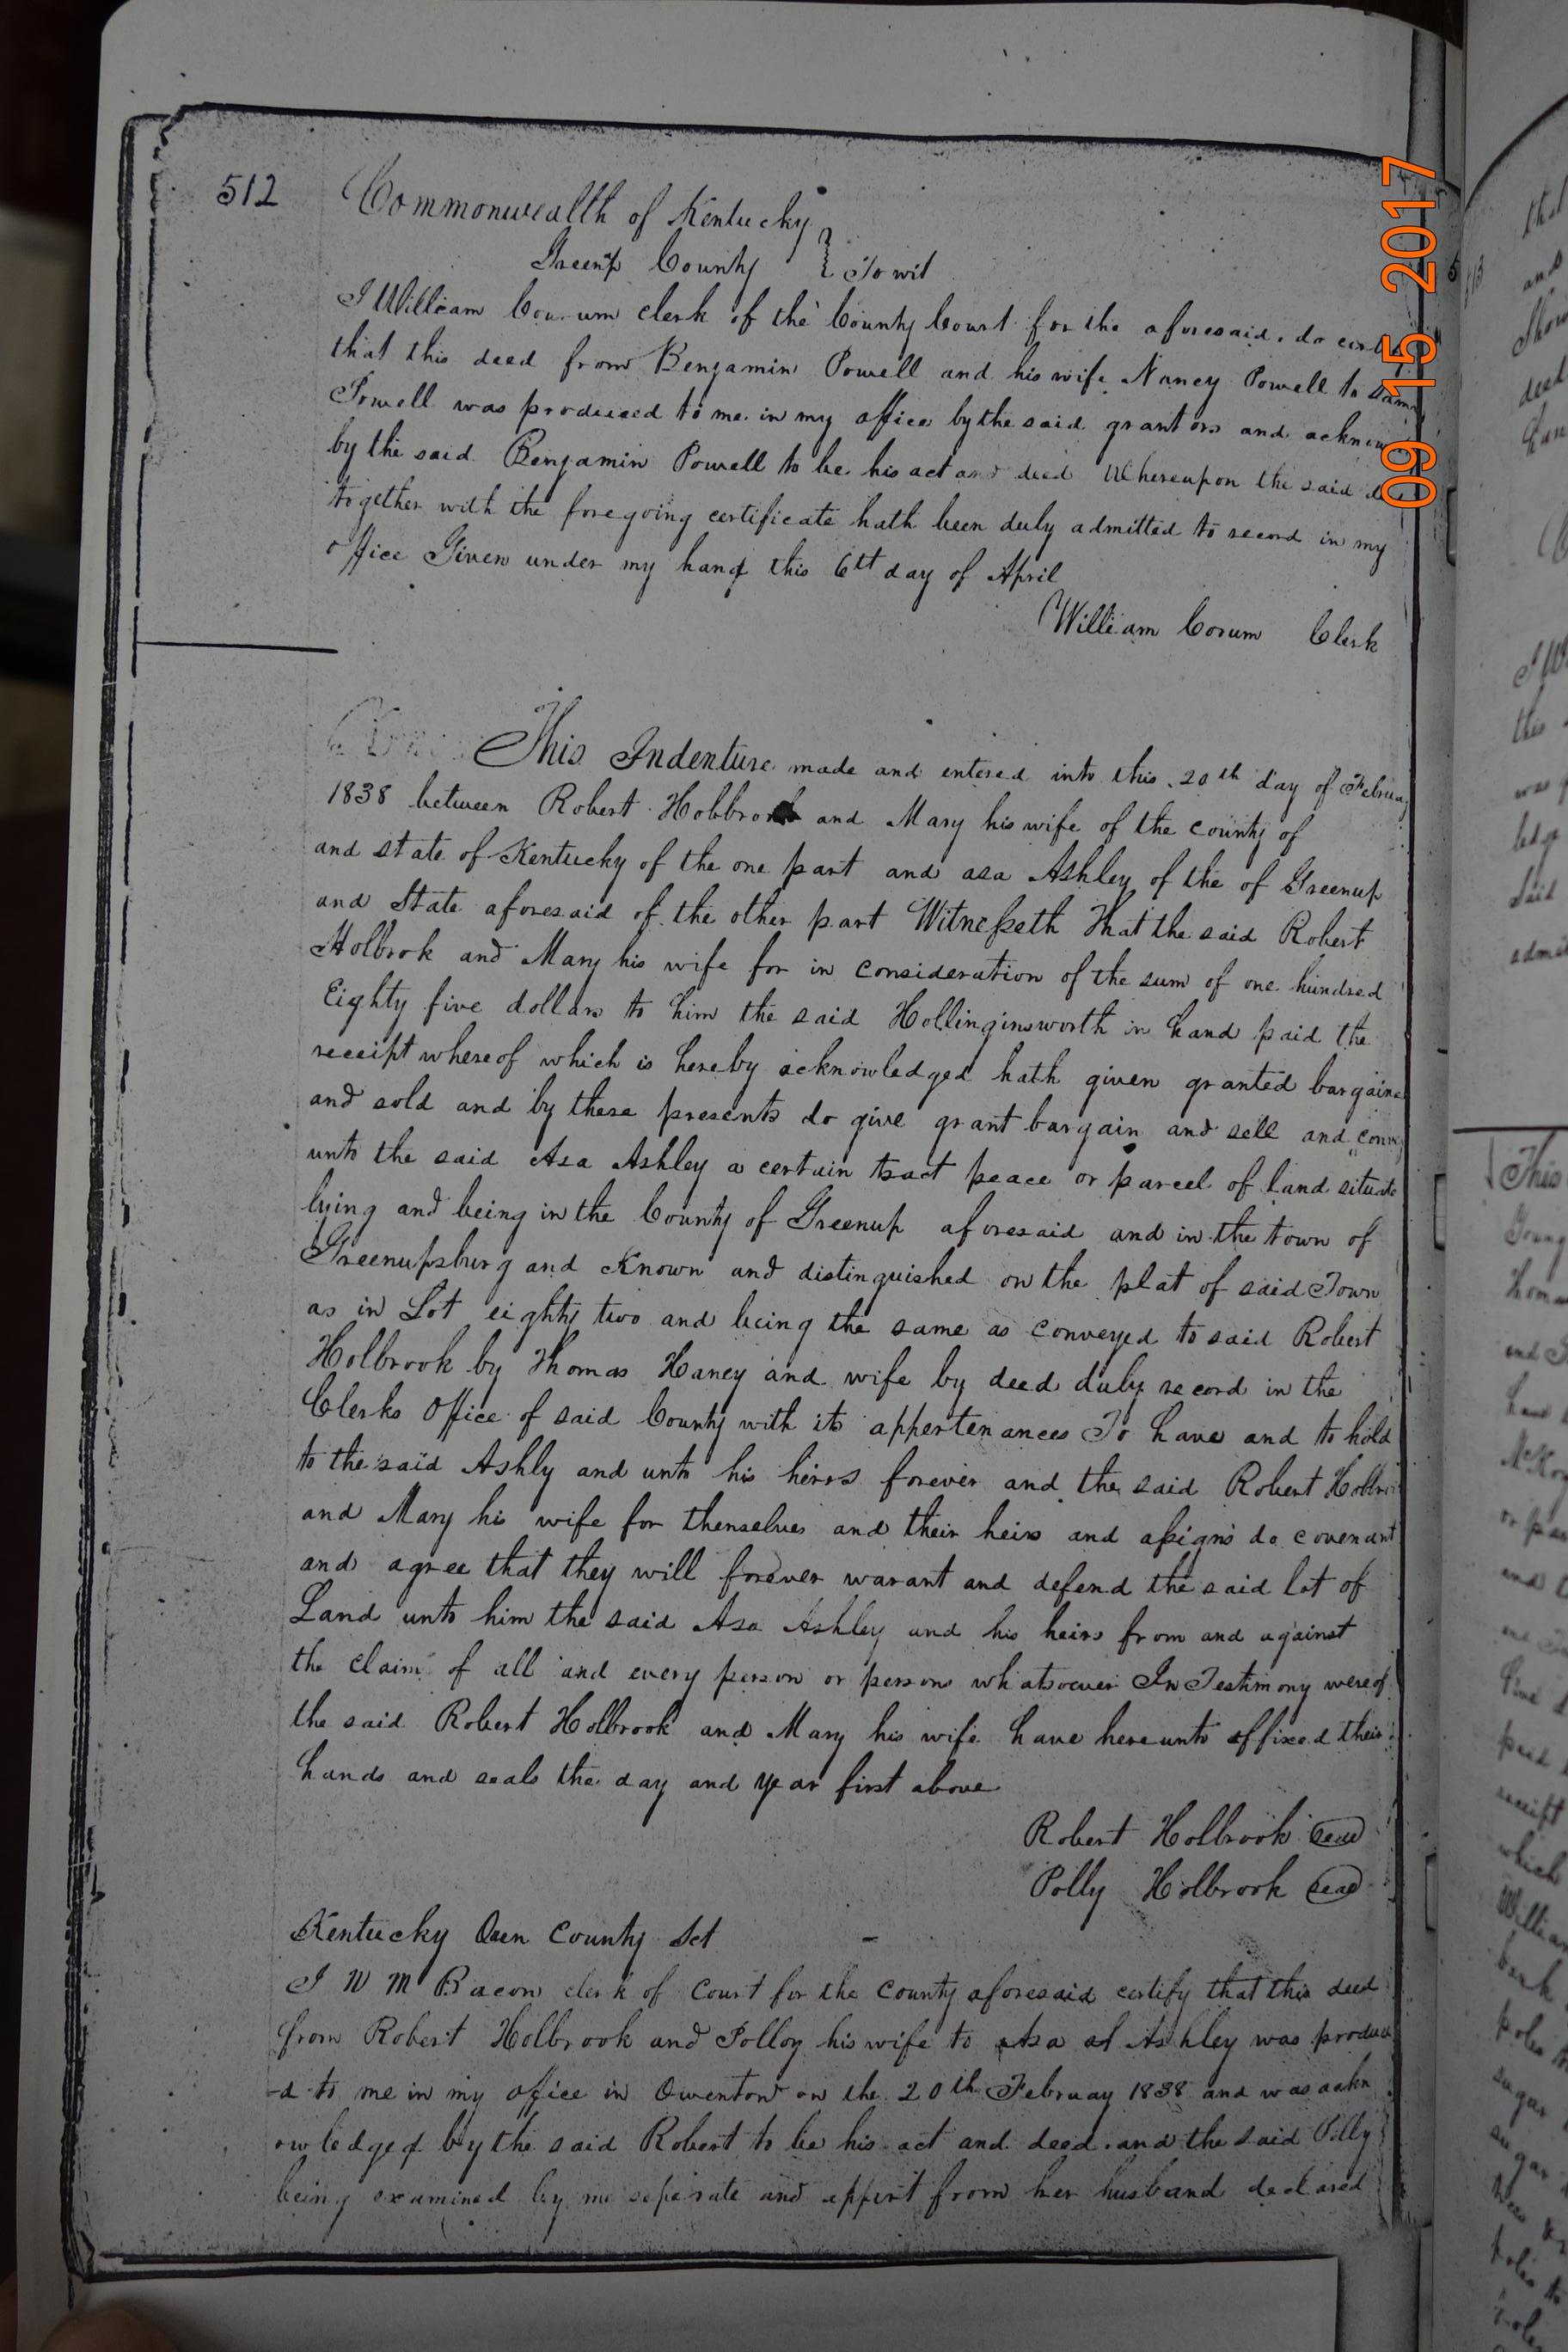 512
Commonwealth of Kentucky
Greenp County } To wit
I William Corum clerk of the County Court for the aforesaid. do
that this deed from Benjamin Powell and his wife Nancy Powell to
Powell was produced to me in my office by the said grantors and
by the said Benjamin Powell to be his act and deed Whereupon the said
together with the foregoing certificate hath been duly admitted to record in my
office Given under my hand this 6th day of April
William Corum Clerk
This Indenture made and entered into this 20th day of February
1838 between Robert Hobbrook and Mary his wife of the county of
and state of Kentucky of the one part and asa Ashley of the of Greenup
and State aforesaid of the other part Witnesseth That the said Robert
Holbrok and Mary his wife for in consideration of the sum of one hundred
Eighty five dollars to him the said Hollinginsworth in hand paid the
receipt whereof which is hereby acknowledged hath given granted bargaine
and sold and by these presents do give grant bargain and sell and convey
unto the said Asa Ashley a certain tract peace or parcel of land situate
lying and being in the County of Greenup aforesaid and in the town of
Greenupsburg and Known and distinguished on the plat of said Town
as in Lot eighty two and being the same as conveyed to said Robert
Holbrook by Thomas Haney and wife by deed duly record in the
Clerks Office of said County with its appertenances To have and to hold
to the said Ashly and unto his heirs forever and the said Robert
and Mary his wife for themselves and their heirs and assigns do covenant
and agree that they will forever warant and defend the said lot of
Land unto him the said Asa Ashley and his heirs from and against
the claim of all and every person or persons whatsoever In Testimony wereof
the said Robert Holbrook and Mary his wife have hereunto affixed their
hands and seals the day and year first above
Robert Holbrook seal
Polly Holbrook seal
Kentucky Owen County Sct
I W M Bacon clerk of Court for the County aforesaid certify that this deed
from Robert Holbrook and Polloy his wife to Asa at Ashley was produc
-d to me in my office in Owenton on the 20th Februay 1838 and was ackn
owledged by the said Robert to be his act and deed. and the said Polly
being examined by me seperate and appart from her husband declared
09 15 2017